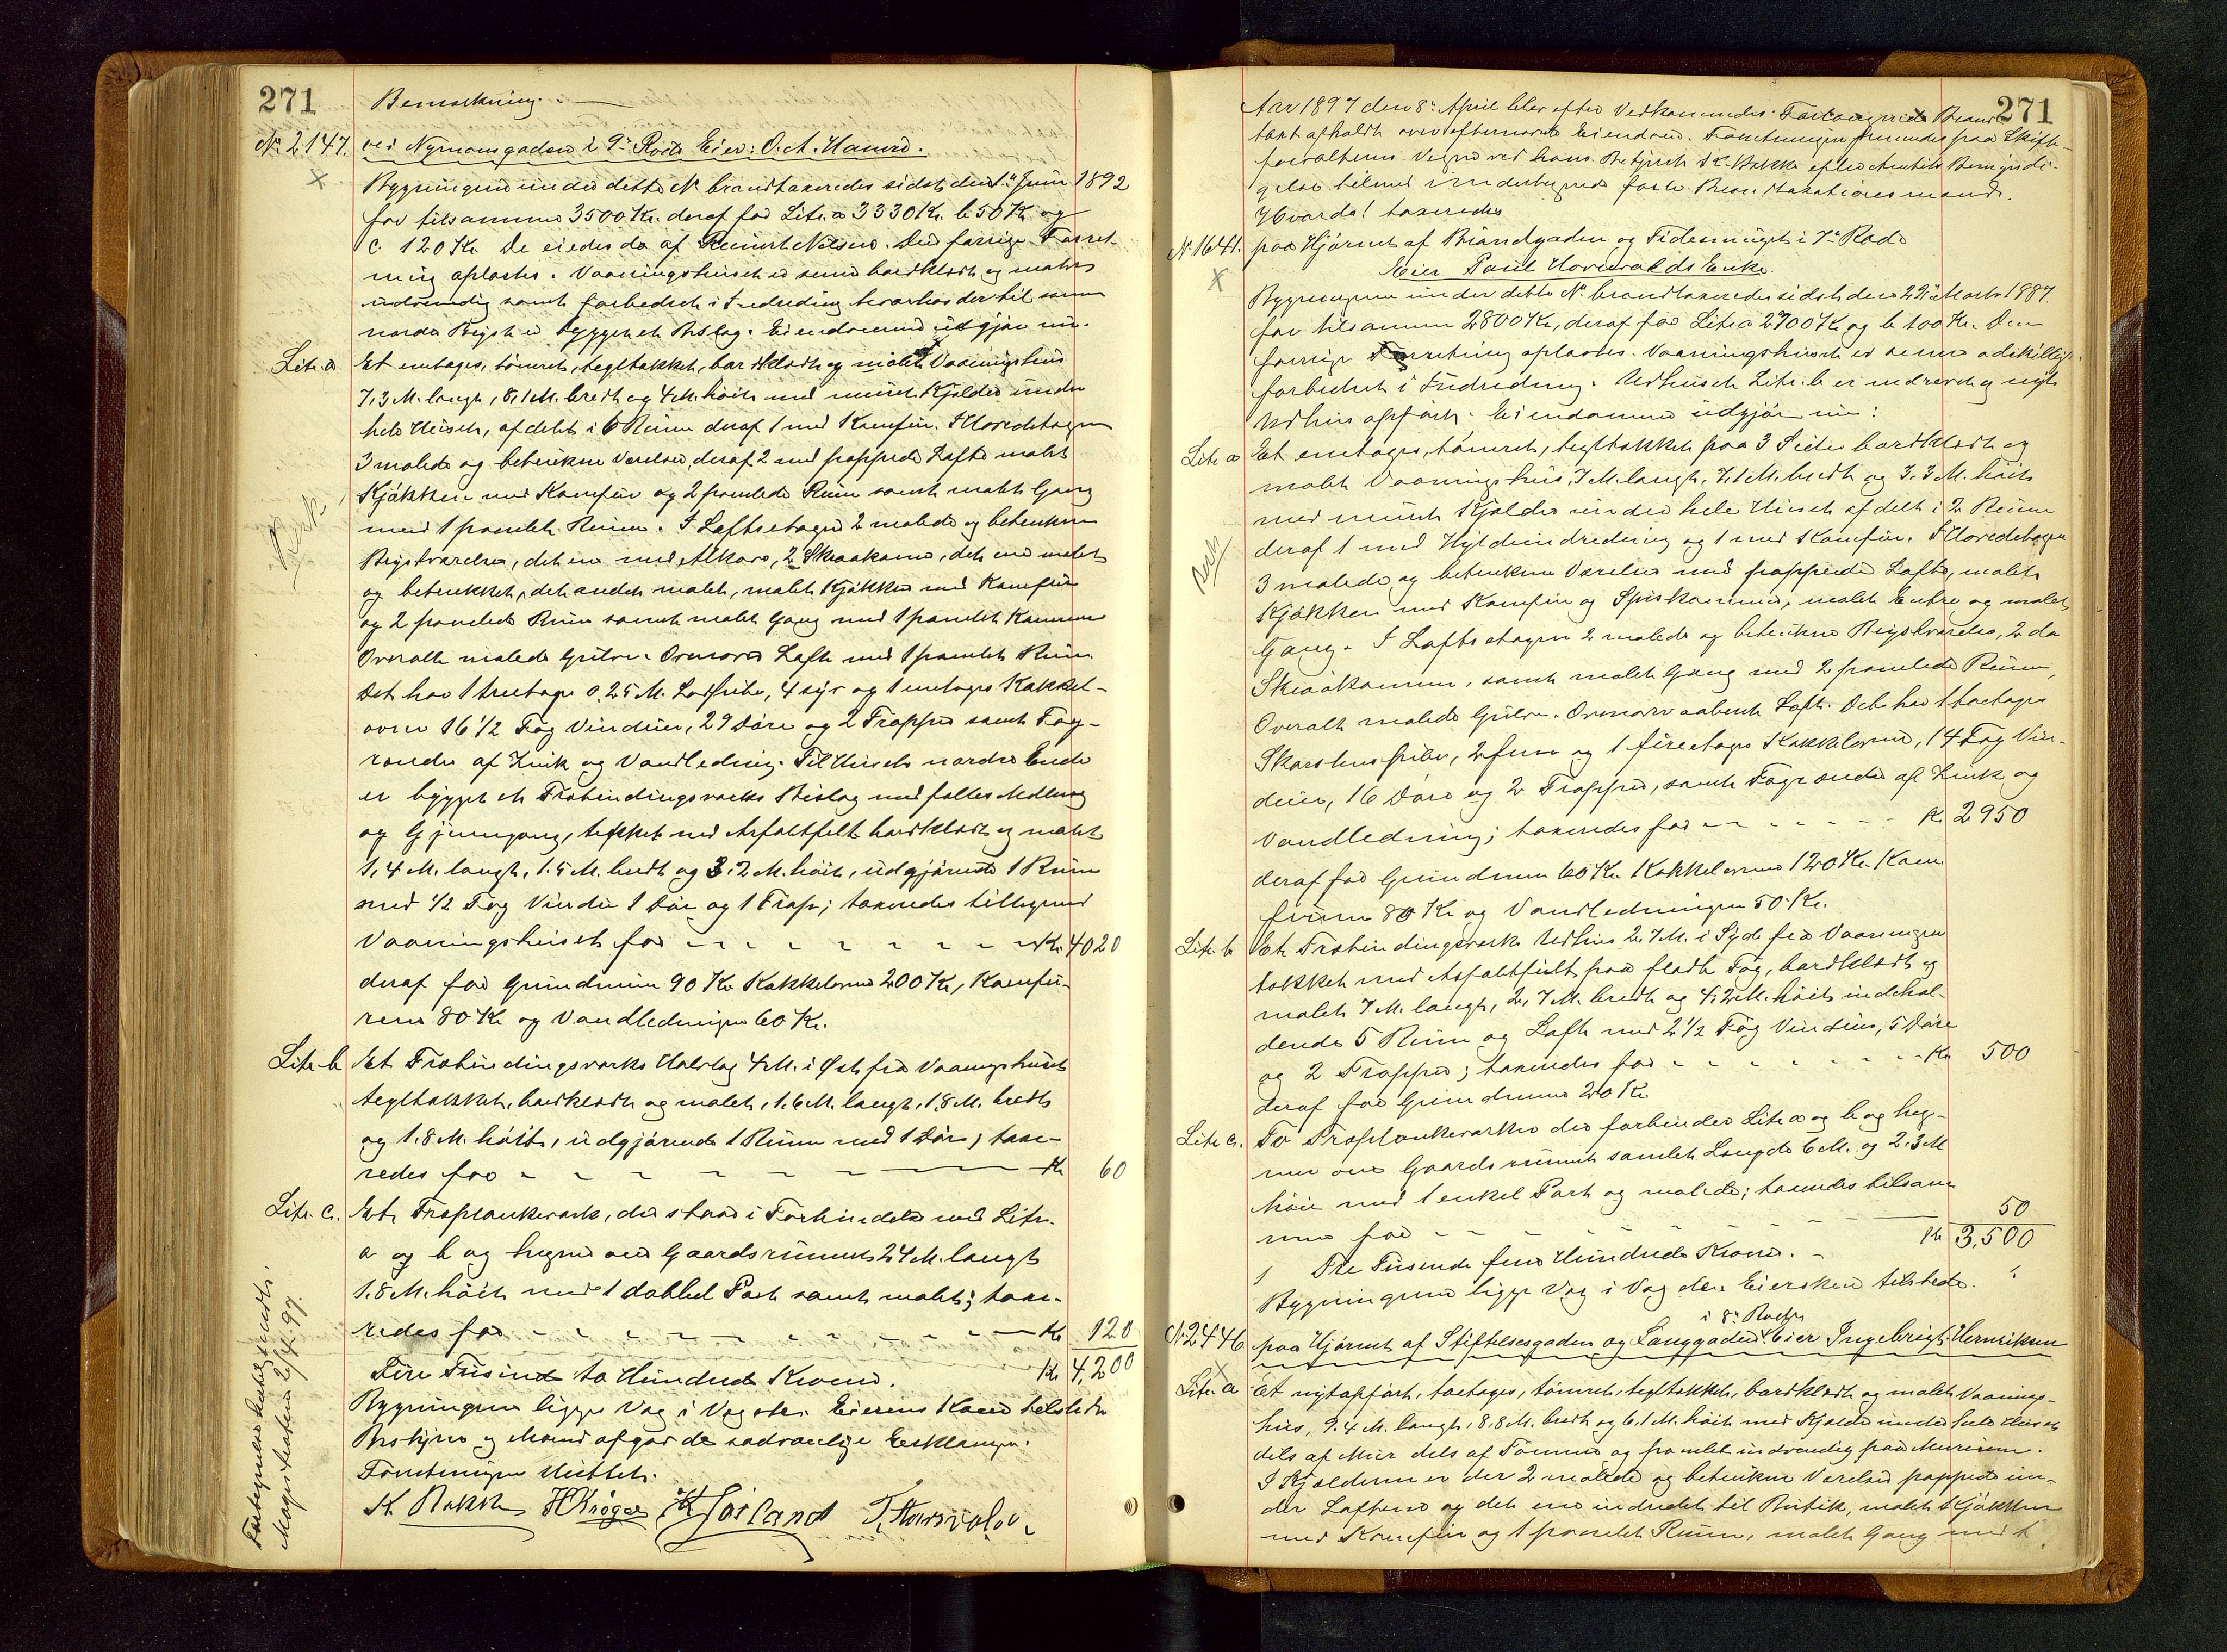 271
Bemærkning.
No 2147. ved Nymansgaden i 9de Rode Eier: O. A. Hanvad.
Bygningerne under dette No brandtaxeredes sidst den 1ste Juni 1892
for tilsammen 3500 Kr. deraf for Litr. a 3330 Kr. b 50 Kr. og
c. 120 Kr. De eiedes da af Reinert Nilsen. Den forrige Forret-
ning oplæstes. Vaaningshuset er senere bordklædt og malet
udvendig samt forbedret i Indredning hvorhos der til sammes
nordre Bryst er bygget et Bislag. Eiendommen udgjør nu:
Litr. a Et enetages, tømret, tegltækket, bordklædt og malet Vaaningshus
7,3 M. langt, 8,1 M. bredt og 4 M. høit med muret Kjelder under
hele Huset, afdelet i 6 Rum deraf 1 med Komfur. I Hovedetagen
3 malede og betrukne Værelser, deraf 2 med pappede Lofte malet
Kjøkken med Komfur og 2 panelede Rum samt malet Gang
med 1 panelet Rum. I Loftsetagen 2 malede og betrukne
Brystværelser, det ene med Alkove, 2 Skraakamre, det ene malet
og betrukket, det andet malet, malet Kjøkken med Komfur
og 2 panelede Rum samt malet Gang med 1 panelet Kammer
Overalt malede Gulve. Ovenover Loft med 1 panelet Rum
Det har 1 treetages 0,25 M. Ladpibe, 4 syv og 1 enetages Kakkel-
ovne 16 1/2 Fag Vinduer, 29 Døre og 2 Trapper samt Tag-
render af Zink og Vandledning. Til Husets nordre Ende
er bygget et Træbindingsværks Bislag med fælles Midlvæg
og Gjennemgang, tækket med Asfaltfilt bordklædt og malet
1,4 M. langt, 1.5 M. bredt og 3.2 M. høit, udgjørende 1 Rum
med 1/2 Fag Vindu 1 Dør og 1 Trap; taxeredes tilligemed
Vaaningshuset for Kr. 4020
deraf for Grundmur 90 Kr. Kakkelovne 200 Kr, Komfu-
rene 80 Kr og Vandledningen 60 Kr.
Litr. b Et Træbindingsværks Halvtag 4 M. i Øst fra Vaaningshuset
tegltækket, bordklædt og malet, 1.6 M. langt, 1.8 M. bredt
og 1.8 M. høit, udgjørende 1 Rum med 1 Dør; taxe-
redes for Kr 60
Litr. c. Et Træplankeværk, der staar i Forbindelse med Litr.
a og b og hegner om Gaardsrummet 24 M. langt
1.8 M. høit med 1 dobbel Port samt malet; taxe-
redes for Kr 120
Fire Tusind to Hundred Kroner. Kr 4,200
Bygningerne ligge Væg i Væg etc. Eierens Kone tilstede
Beskjen og Mænd afgav de sædvanlige Erklæringer.
Forretningen sluttet.
K. Bakke H Krøger Jøsland T. Hansvolen
Besk.
Fæstegrunden betalt smdt.
Magistraten 26/4. 97.
271
Aar 1897 den 8de April blev efter Vedkommendes Forlangende Brand-
taxt afholdt over efternævnte Eiendom. Forretningen fremmedes paa Skifte-
forvalterens Vegne ved hans Betjent K. Bakke efter Amtets Bemyndi-
gelse tilmed undertegnede faste Brandtaxationsmænd.
Hvorda! taxeredes
No 1641. paa Hjørnet af Brandgaden og Tidesmuget i 7de Rode
Eier Poul Hovervalds Enke.
Bygningerne under dette No brandtaxeredes sidst den 29de Marts 1887
for tilsammen 2800 Kr, deraf for Litr. a 2700 Kr og b 100 Kr. Den
forrige Forretning oplæstes. Vaaningshuset er senere adskilligt
forbedret i Indredning. Udhuset Litr. b er nedrevet og nyt
Udhus opført. Eiendommen udgjør nu:
Litr. a Et enetages, tømret, tegltækket paa 3 Sider bordklædt og
malet Vaaningshus, 7 M. langt, 7.1 M. bredt og 3.3 M. høit
med muret Kjelder under hele Huset afdelt i 2 Rum
deraf 1 med Hyldeindredning og 1 med Komfur. I Hovedetagen
3 malede og betrukne Værelser med pappede Lofte, malet
Kjøkken med Komfur og Spiskammer, malet Entre og malet
Gang. I Loftsetagen 2 malede og betrukne Brystværelser, 2 do
Skraakammer, samt malet Gang med 2 panelede Rum,
Overalt malede Gulve. Ovenover aabent Loft. Det har 1 toetages
Skorstenspibe, 2 fem og 1 fireetages Kakkelovne, 14 Fag Vin-
duer, 16 Døre og 2 Trapper, samt Tagrender af Zink og
Vandledning; taxeredes for Kr. 2950
deraf for Grundmuren 60 Kr. Kakkelovne 120 Kr. Kom
furene 80 Kr og Vandledningen 50 Kr.
Litr. b Et Træbindingsværks Udhus 2,7 M. i Syd fra Vaaningen
tækket med Asfaltfilt paa fladt Tag, bordklædt og
malet 7 M. langt, 2,7 M. bredt og 4,2 M. høit indehol-
dende 5 Rum og Loft med 2 1/2 Fag Vinduer, 5 Døre
og 2 Trapper; taxeredes for Kr 500
deraf for Grundmuren 20 Kr.
Litr. c. To Træplankeværker der forbinder Litr a og b og heg-
ner om Gaardsrummet samlet Længde 6 M. og 2.3 M
høie med 1 enkel Port og malede; taxeredes tilsam
men for 50
Tre Tusinde fem Hundrede Kroner. Kr 3,500
Bygningerne ligge Væg i Væg etc. Eiersken tilstede.
i 8de Rode
No 2446 paa Hjørnet af Stiftelsesgaden og Langgaden Eier Ingebrigt Henriksen
Litr. a Et nyt opført, toetages, tømret, tegltækket, bordklædt og malet Vaanings-
hus, 9.4 M. langt, 8.8 M. bredt og 6.1 M. høit med Kjelder under hele Huset
dels af Mur dels af Tømmer og panelet indvendig paa Murene.
I Kjelderen er der 2 malede og betrukne Værelser pappede un-
der Loftene og det ene indredet til Butik, malet Kjøkken
med Komfur og 1 panelet Rum, malet Gang med 1